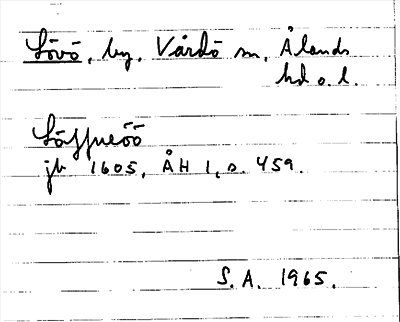 Lövö, by, Vårdö sn, Ålands
hd o. l.
jb 1605, ÅH 1, s. 459.
S.A. 1965.